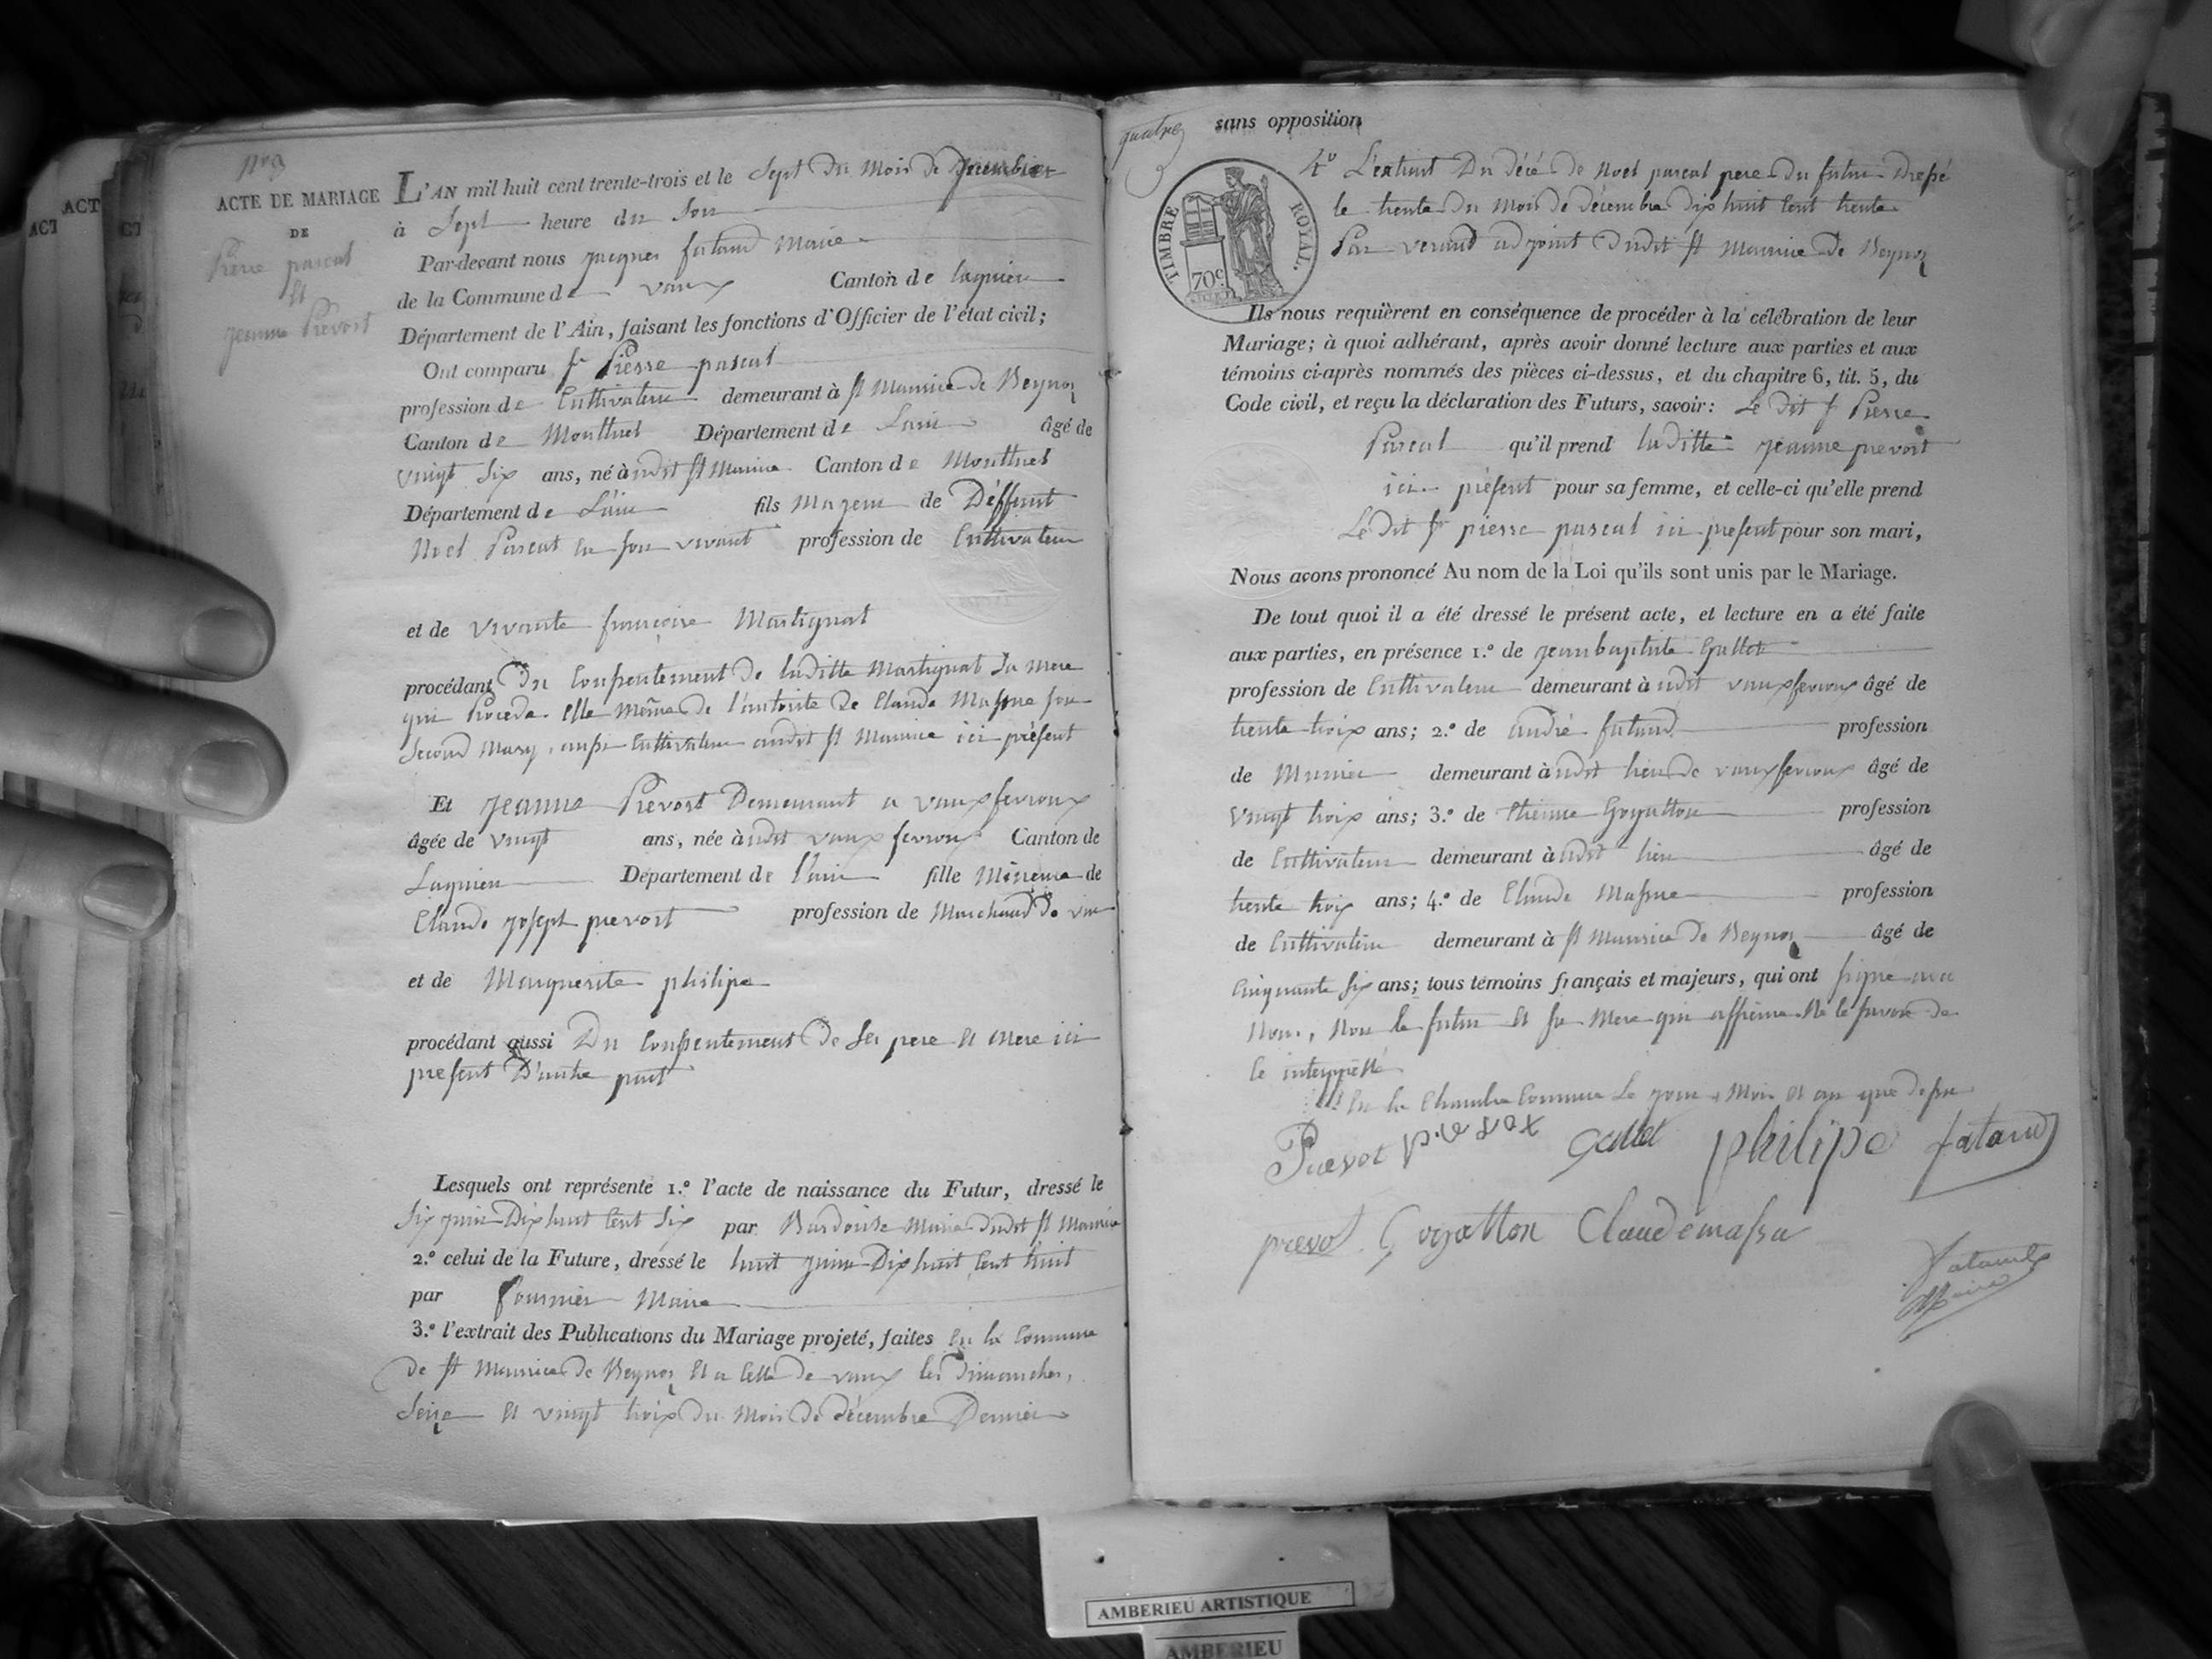 ACT
ACT
N° 3
ACTE DE MARIAGE
DE
Pierre pascal
Et
jeanne Prevost
L'AN mil huit cent trente-trois et le Sept du mois de
à Sept heure du Soir
Par-devant nous jacques fataud Maire
de la Commune de vaux Canton de lagnieu
Département de l'Ain, faisant les fonctions d'Officier de l'état civil;
Ont comparu Sr Pierre pascal
profession de Cultivateur demeurant à St Maurice de Beynoz
Canton de Montluel Département de Lain âgé de
vingt Six ans, né à udit St Maurice Canton de Montluel
Département de L'ain fils Majeur de Déffunt
Noel Pascal En Son vivant profession de Cultivateur
et de vivante françoise Martignat
procédant Du Consentement de laditte Martignat Sa mere
qui Procede Elle même de l'autorité de Claude Massue Son
Second Mary, aussi Cultivateur audit St Maurice ici présent
Et jeanne Prevost Demeurant a vaux fevroux
âgée de vingt ans, née à udit vaux fevroux Canton de
Lagnieu Département de l'ain fille Mineure de
Claude joseph prevost profession de Marchand de vin
et de Marguerite philipe
procédant aussi Du Consentement de Ses pere Et mere ici
present D'autre part
Lesquels ont représenté 1.° l'acte de naissance du Futur, dressé le
Six juin Dix huit Cent Six par Maire dudit St Maurice
2.° celui de la Future, dressé le huit juin Dix huit Cent huit
par fournier Maire
3.° l'extrait des Publications du Mariage projeté, faites En la Commune
de St Maurice de Beynoz Et a Celle de vaux les dimanches,
Seize Et vingt troix du Mois de décembre Dernier
quatre
sans opposition
TIMBRE ROYAL.
70c
4° L'extrait Du décé de Noel pascal pere du futur Dressé
le trente du Mois de décembre dix huit Cent trente
Par veraud adjoint dudit St Maurice de Beynoz
Ils nous requièrent en conséquence de procéder à la célébration de leur
Mariage; à quoi adhérant, après avoir donné lecture aux parties et aux
témoins ci-après nommés des pièces ci-dessus, et du chapitre 6, tit. 5, du
Code civil, et reçu la déclaration des Futurs, savoir: Le dit Sr Pierre
Pascal qu'il prend laditte jeanne prevost
ici présent pour sa femme, et celle-ci qu'elle prend
Le Dit Sr pierre pascal ici present pour son mari,
Nous avons prononcé Au nom de la Loi qu'ils sont unis par le Mariage.
De tout quoi il a été dressé le présent acte, et lecture en a été faite
aux parties, en présence 1.° de jean baptiste Gullet
profession de Cultivateur demeurant à udit vaux fevroux âgé de
trente troix ans; 2.° de andré fataud profession
de Munier demeurant à udit lieu de vaux fevroux âgé de
vingt troix ans; 3.° de Etienne Goyatton profession
de Cultivateur demeurant à udit lieu âgé de
trente troix ans; 4.° de Claude Massue profession
de Cultivateur demeurant à St Maurice de Beynoz âgé de
Cinquante Six ans; tous témoins français et majeurs, qui ont signe avec
Nous, Non le futur Et Sa Mere qui affirme Ne le Savoir de
Ce interppellé
En la Chambre Commune Le jour, Mois Et an que dessu
Prevot Gullet philipe fataud
prevot Goyatton Claude massu
fataud
Maire
AMBERIEU ARTISTIQUE
AMBERIEU